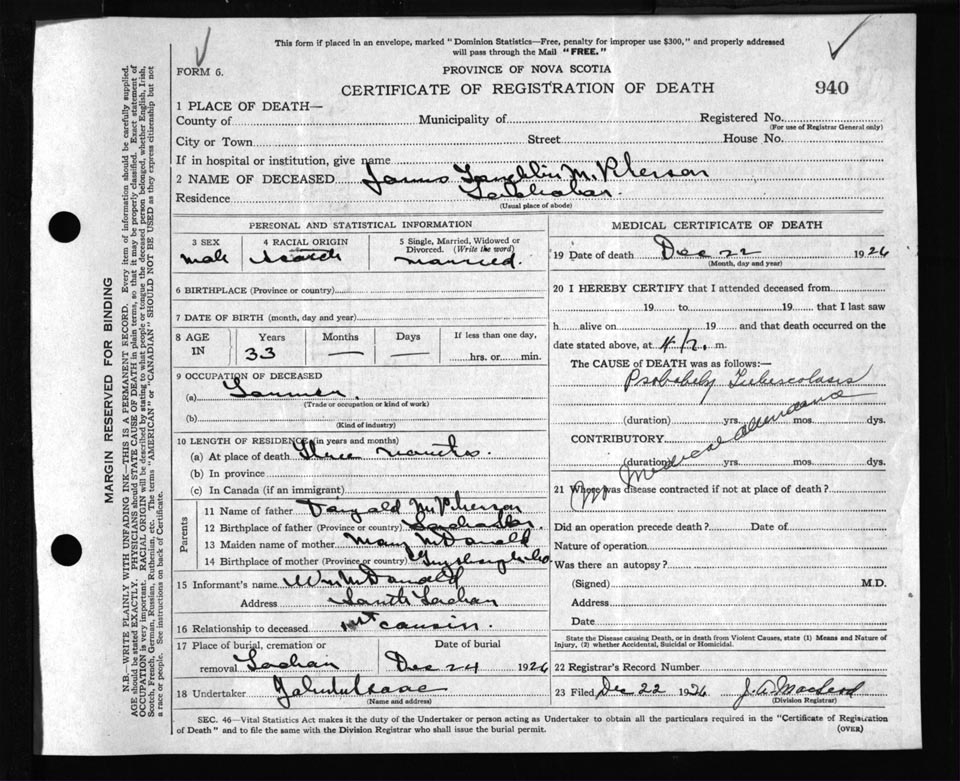 This form if placed in an envelope, marked "Dominion Statistics—Free, penalty for improper use $300," and properly addressed
will pass through the Mail "FREE."
FORM 6.
PROVINCE OF NOVA SCOTIA
CERTIFICATE OF REGISTRATION OF DEATH
940
1 PLACE OF DEATH—
County of Municipality of Registered No.
(For use of Registrar General only)
City or Town Street House No.
If in hospital or institution, give name
2 NAME OF DECEASED James McPherson
Residence
(Usual place of abode)
PERSONAL AND STATISTICAL INFORMATION
3 SEX 4 RACIAL ORIGIN 5 Single, Married, Widowed or
Divorced. (Write the word)
male Scotch married.
6 BIRTHPLACE (Province or country)
7 DATE OF BIRTH (month, day and year)
8 AGE Years Months Days If less than one day,
IN 33 — — hrs. or min.
9 OCCUPATION OF DECEASED
(a) Farmer.
(Trade or occupation or kind of work)
(b)
(Kind of industry)
10 LENGTH OF RESIDENCE (in years and months)
(a) At place of death Three months.
(b) In province
(c) In Canada (if an immigrant)
Parents
11 Name of father McPherson
12 Birthplace of father (Province or country)
13 Maiden name of mother Mary McDonald
14 Birthplace of mother (Province or country) Guysborough Co.
15 Informant's name Wm McDonald
Address South Lochan
16 Relationship to deceased cousin.
17 Place of burial, cremation or Date of burial
removal Dec 24 1926
18 Undertaker John
(Name and address)
MEDICAL CERTIFICATE OF DEATH
19 Date of death Dec 22 1926
(Month, day and year)
20 I HEREBY CERTIFY that I attended deceased from
19 to 19 that I last saw
h alive on 19 and that death occurred on
date stated above, at 4 p. m.
The CAUSE OF DEATH was as follows:
Probably Tuberculosis
(duration) yrs. mos. dys.
CONTRIBUTORY
(duration) yrs. mos. dys.
No Medical Attendance
21 Where was disease contracted if not at place of death?
Did an operation precede death? Date of
Nature of operation
Was there an autopsy?
(Signed) M.D.
Address
Date
State the Disease causing Death, or in death from Violent Causes, state (1) Means and Nature of
Injury, (2) whether Accidental, Suicidal or Homicidal.
22 Registrar's Record Number
23 Filed Dec 22 1926 J. A. MacLeod
(Division Registrar)
SEC. 46—Vital Statistics Act makes it the duty of the Undertaker or person acting as Undertaker to obtain all the particulars required in the "Certificate of Registration
of Death" and to file the same with the Division Registrar who shall issue the burial permit.
(OVER)
MARGIN RESERVED FOR BINDING
N.B.—WRITE PLAINLY WITH UNFADING INK—THIS IS A PERMANENT RECORD. Every item of information should be carefully supplied.
AGE should be stated EXACTLY. PHYSICIANS should STATE CAUSE OF DEATH in plain terms, so that it may be properly classified. Exact statement of
OCCUPATION is very important. RACIAL ORIGIN will be described by stating to what people or tongue the deceased person belonged, whether English, Irish,
Scotch, French, German, Russian, Ruthenian, etc. The terms "AMERICAN" or "CANADIAN" SHOULD NOT BE USED as they express citizenship but not
a race or people. See instructions on back of Certificate.